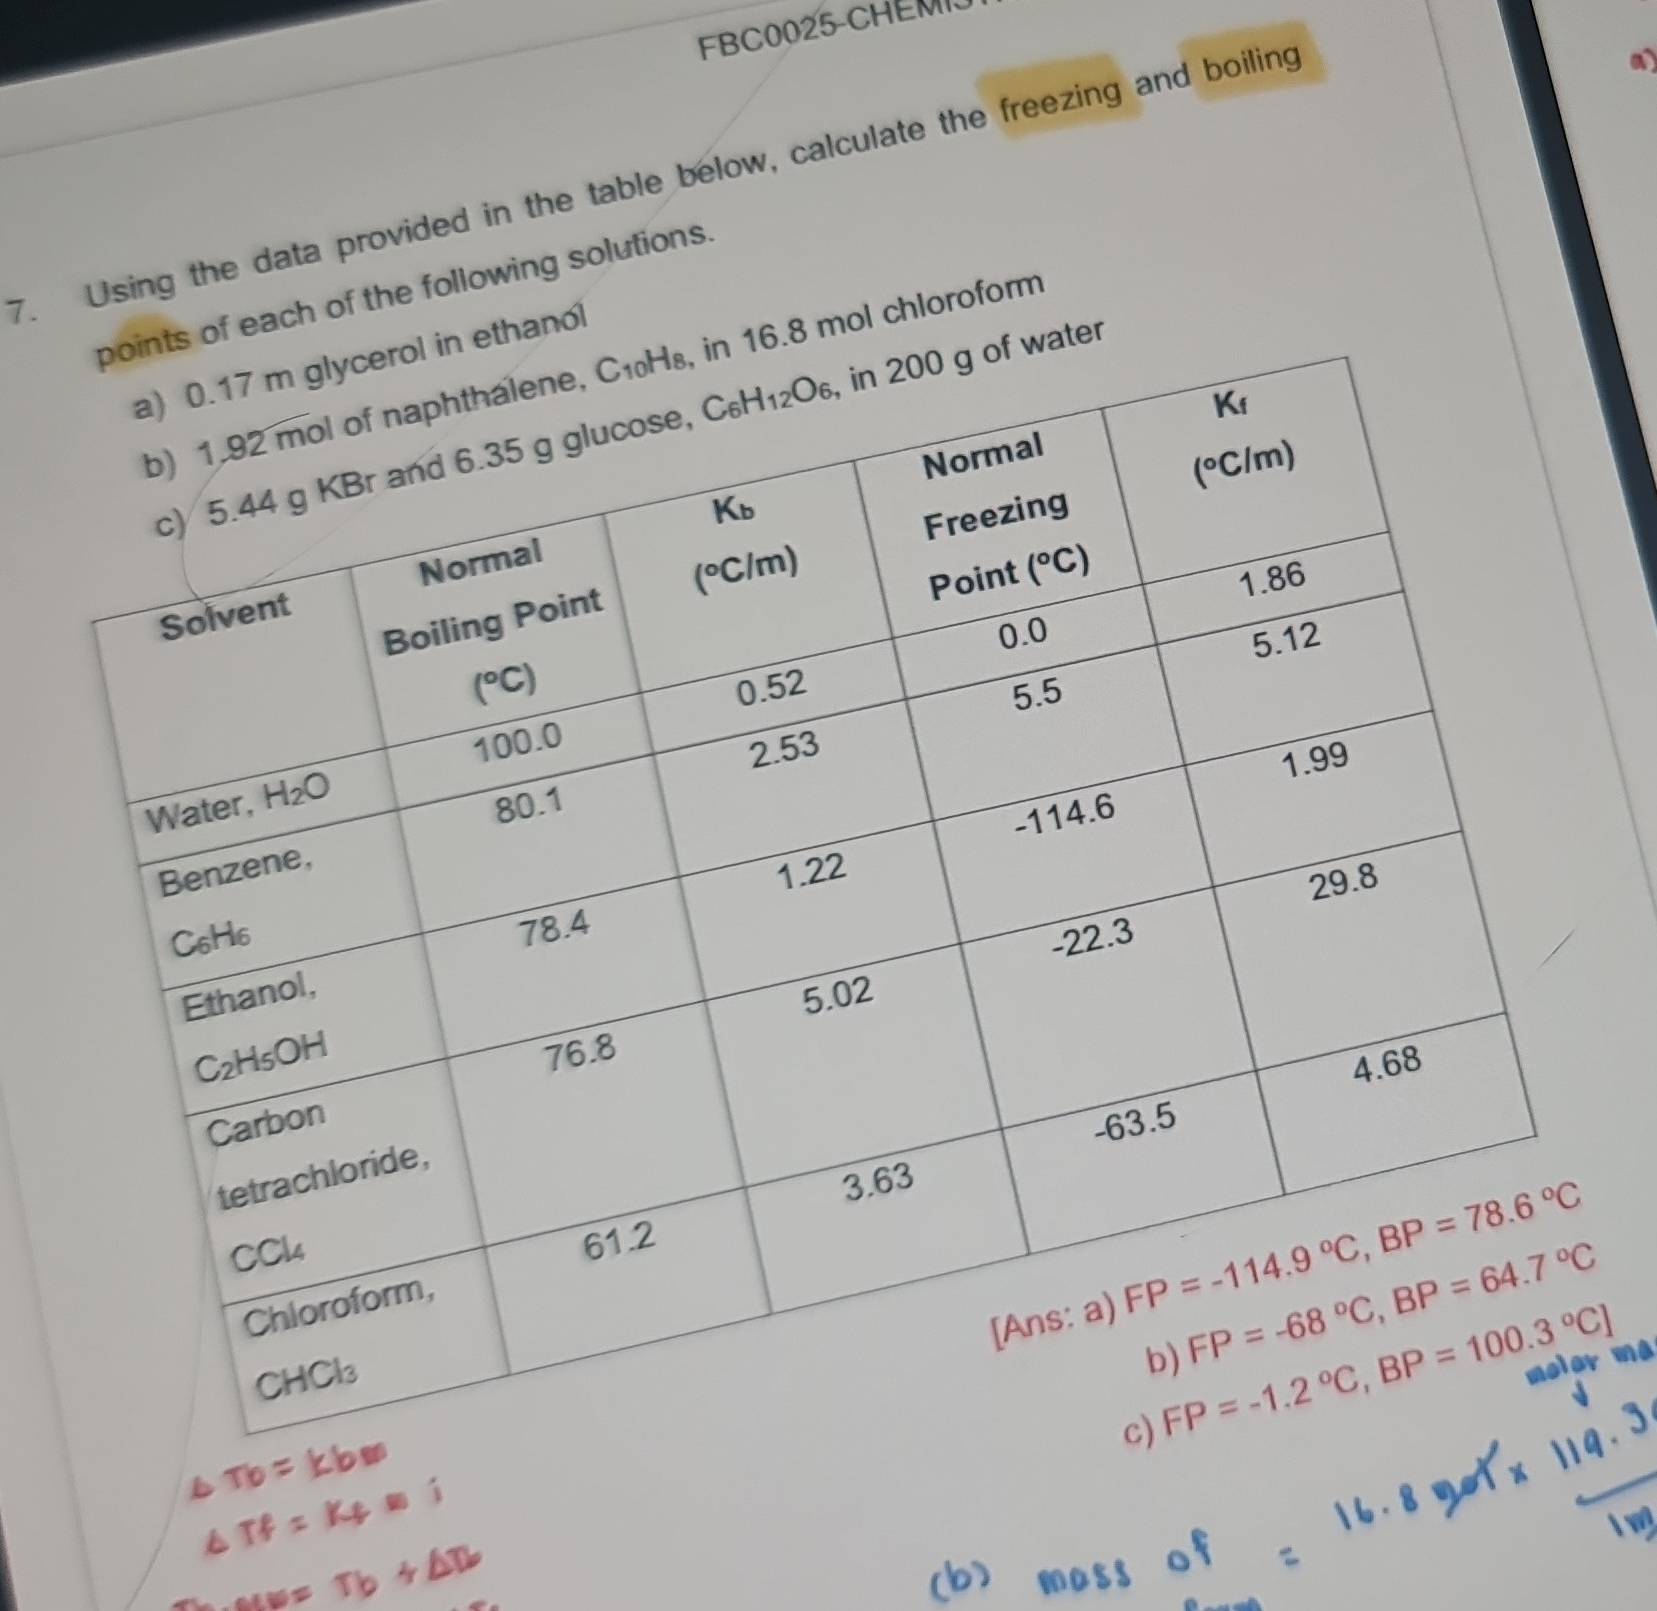 FBC0025-CHEMIS
a)
7. Using the data provided in the table below, calculate the freezing and boiling
points of each of the following solutions.
a) 0.17 m glycerol in ethanol
b) 1.92 mol of naphthalene, C₁₀H₈, in 16.8 mol chloroform
c) 5.44 g KBr and 6.35 g glucose, C₆H₁₂O₆, in 200 g of water
Solvent | Normal Boiling Point (ºC) | Kb (ºC/m) | Normal Freezing Point (ºC) | Kf (ºC/m)
Water, H₂O | 100.0 | 0.52 | 0.0 | 1.86
Benzene, C₆H₆ | 80.1 | 2.53 | 5.5 | 5.12
Ethanol, C₂H₅OH | 78.4 | 1.22 | -114.6 | 1.99
Carbon tetrachloride, CCl₄ | 76.8 | 5.02 | -22.3 | 29.8
Chloroform, CHCl₃ | 61.2 | 3.63 | -63.5 | 4.68
[Ans: a) FP = -114.9 ºC, BP = 78.6 ºC
b) FP = -68 ºC, BP = 64.7 ºC
c) FP = -1.2 ºC, BP = 100.3 ºC]
ΔTb = Kbm
ΔTf = Kf m i
= Tb + ΔTb
molar ma
(b) mass of = 16.8 mol x 119.3
1m